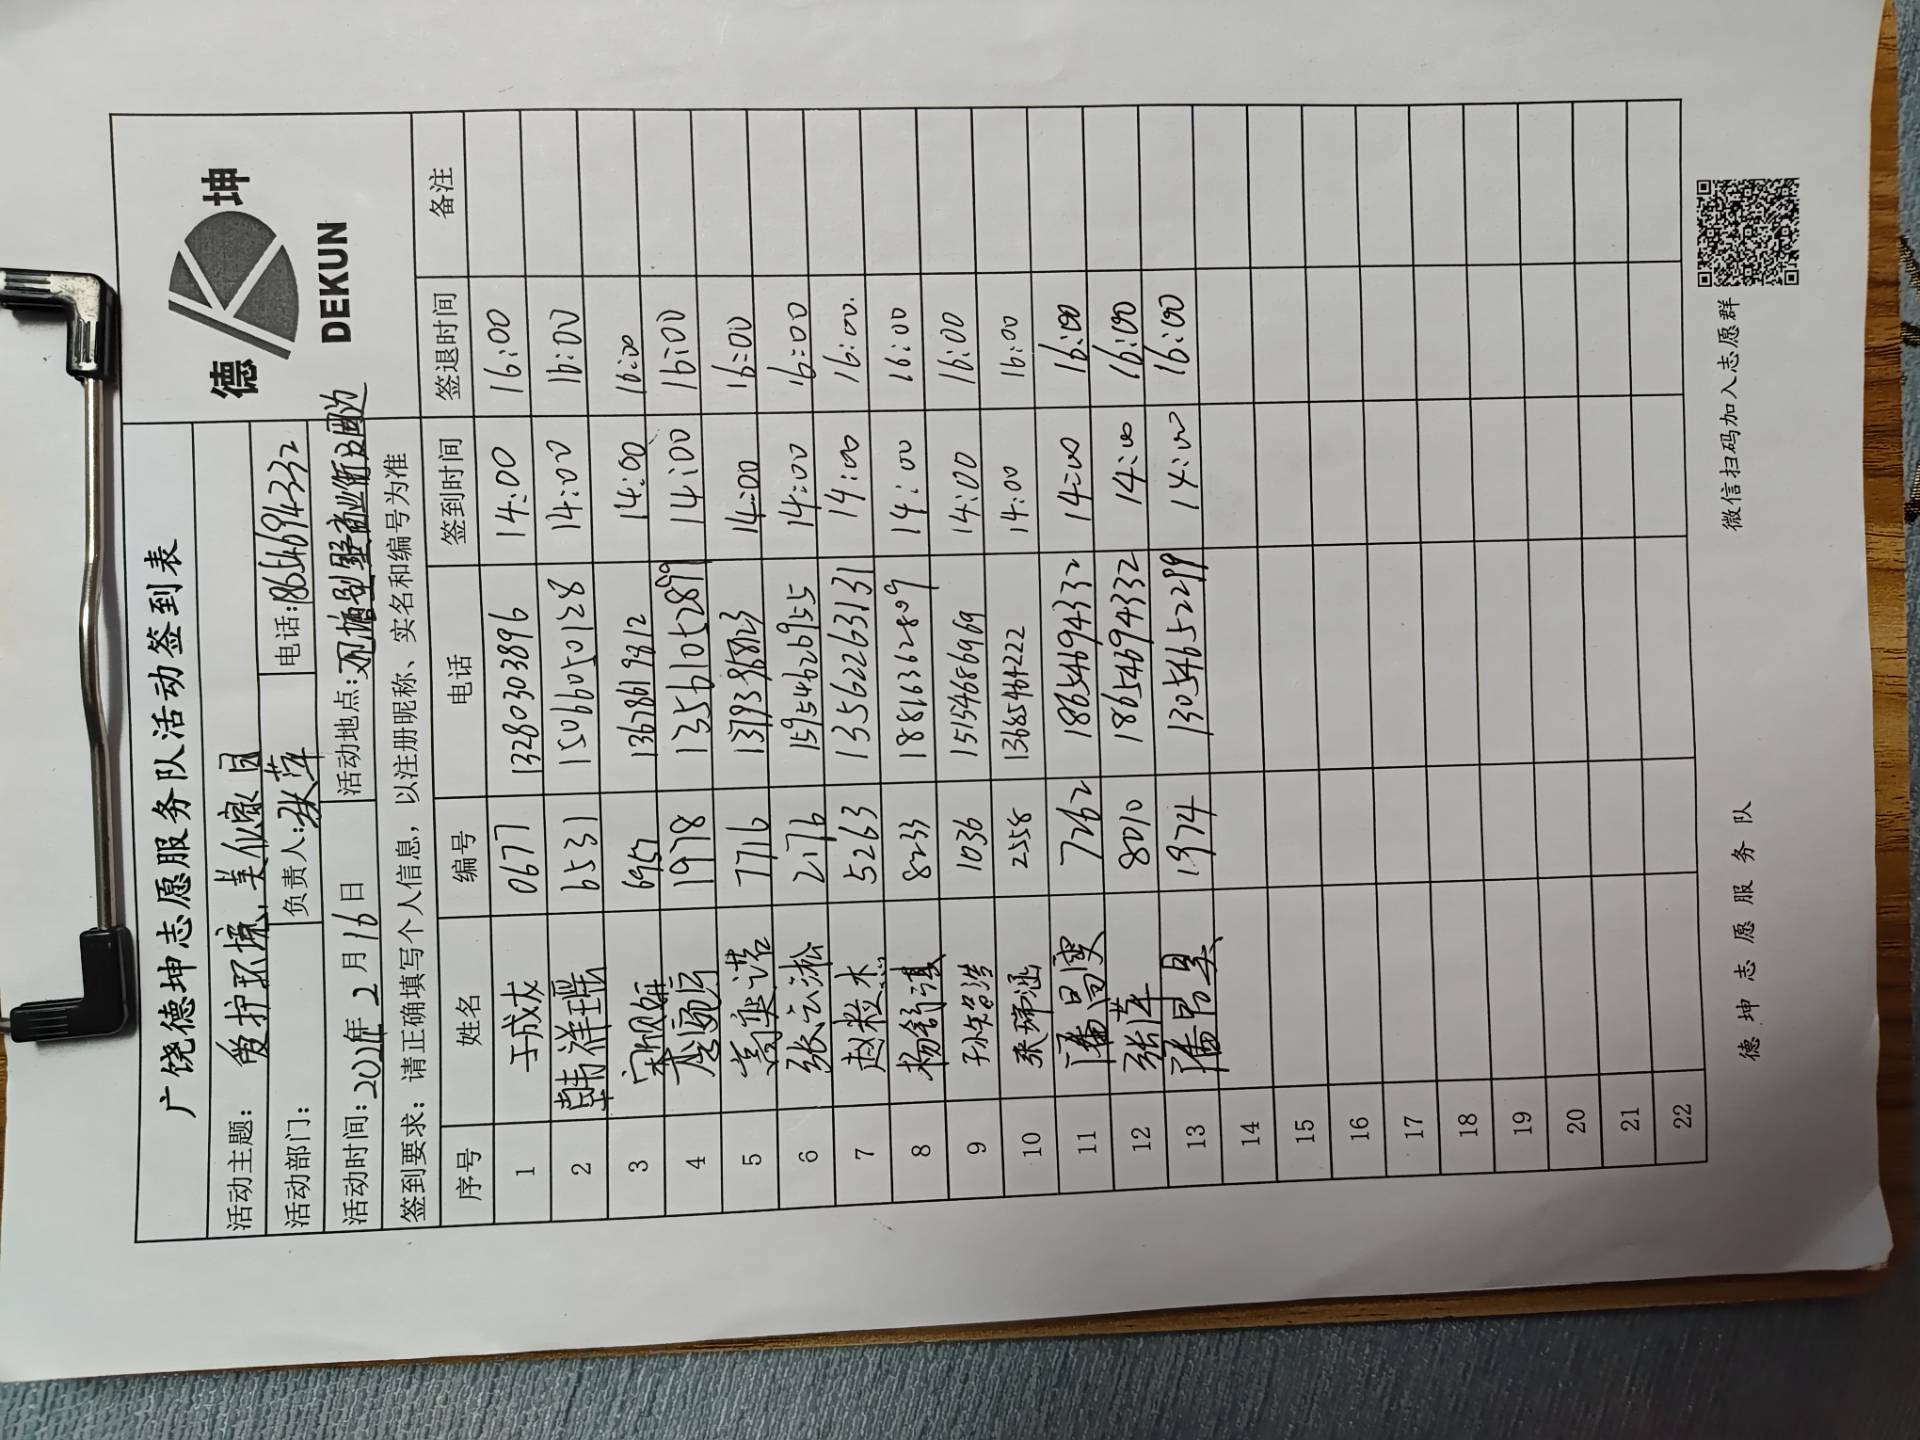 广饶德坤志愿服务队活动签到表
德 坤
DEKUN
活动主题： 爱护环境,美化家园
活动部门： 负责人:张萍 电话:18654694332
活动时间:2021年2月16日 活动地点: 别墅商业街及周边
签到要求：请正确填写个人信息，以注册昵称、实名和编号为准
序号 姓名 编号 电话 签到时间 签退时间 备注
1 于成成 0677 13280303896 14:00 16:00
2 韩祥瑶 6531 15066050128 14:00 16:00
3 宋欣妍 6957 13678619812 14:00 16:00
4 李宛 1978 13561052899 14:00 16:00
5 高奕诺 7716 13793968123 14:00 16:00
6 张云淞 2176 15954626955 14:00 16:00
7 赵粒杰 5263 13562263131 14:00 16:00.
8 杨舒淇 8233 18816362809 14:00 16:00
9 孙智浩 1036 15154686969 14:00 16:00
10 张瑞涵 2558 13685464222 14:00 16:00
11 潘昌雯 7262 18654694332 14:00 16:00
12 张萍 8010 18654694332 14:00 16:00
13 潘昌昊 1974 13054652299 14:00 16:00
14
15
16
17
18
19
20
21
22
德坤志愿服务队 微信扫码加入志愿群